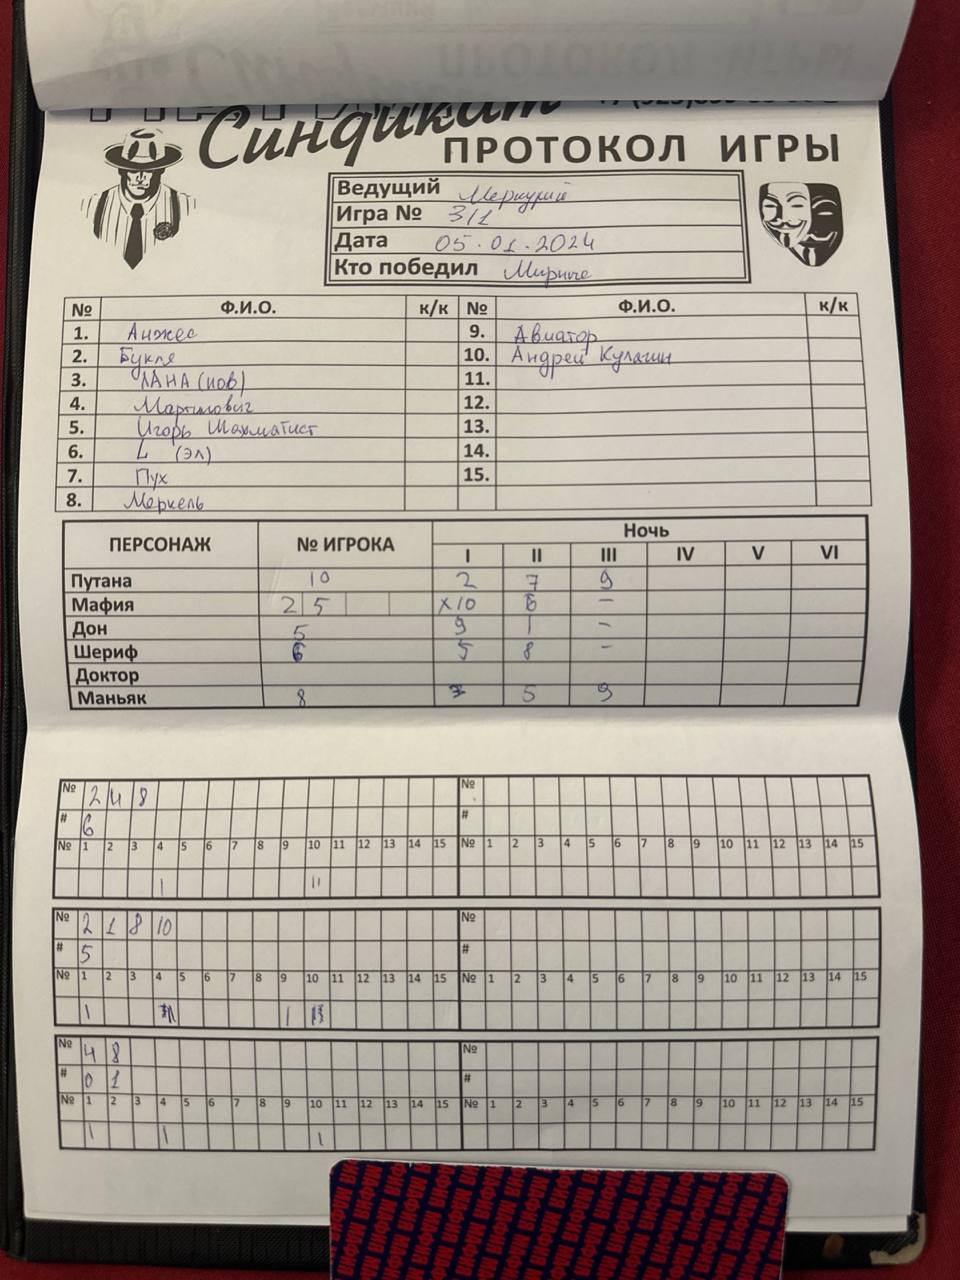 Синдикат
ПРОТОКОЛ ИГРЫ
Ведущий Меркурий
Игра № 3/1
Дата 05.01.2024
Кто победил Мирные
№ Ф.И.О. к/к № Ф.И.О. к/к
1. Анжес 9. Авиатор
2. Букля 10. Андрей Кулагин
3. ЛАНА (нов) 11.
4. Мартинович 12.
5. Игорь Шахматист 13.
6. L (эл) 14.
7. Пух 15.
8. Меркель
ПЕРСОНАЖ № ИГРОКА Ночь
I II III IV V VI
Путана 10 2 7 9
Мафия 2 5 x10 6 –
Дон 5 9 1 –
Шериф 6 5 8 –
Доктор
Маньяк 8 7 5 9
№ 2 4 8 №
# 6 #
№ 1 2 3 4 5 6 7 8 9 10 11 12 13 14 15 № 1 2 3 4 5 6 7 8 9 10 11 12 13 14 15
| ||
№ 2 1 8 10 №
# 5 #
№ 1 2 3 4 5 6 7 8 9 10 11 12 13 14 15 № 1 2 3 4 5 6 7 8 9 10 11 12 13 14 15
| |
№ 4 8 №
# 0 1 #
№ 1 2 3 4 5 6 7 8 9 10 11 12 13 14 15 № 1 2 3 4 5 6 7 8 9 10 11 12 13 14 15
| | |